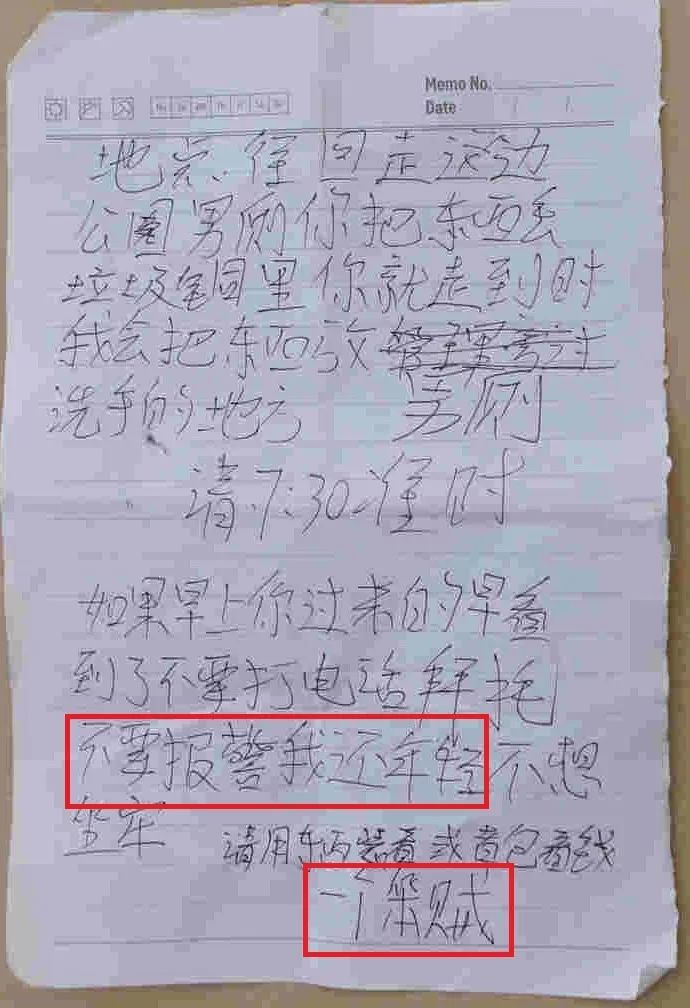 Memo No.
Date / /
地点.往回走这边
公园男厕你把东西丢
垃圾里你就走到时
我会把东西放
洗手的地方 男厕
请7:30准时
如果早上你过来的早看
到了不要打电话拜托
不要报警我还年轻不想
坐牢
请用东西装着或者包着钱
一个笨贼